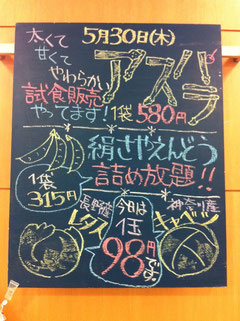 5月30日(木)
太くて
甘くて
やわらかい
アスパラ
試食販売
やってます!
1袋580円
絹さやえんどう
詰め放題!!
1袋
315円
長野産
レタス
今日は
1玉
98円です。
神奈川産
キャベツ